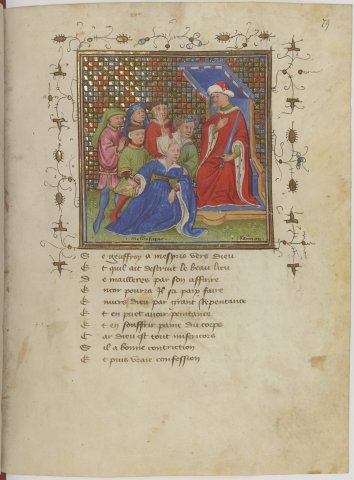 melusigne Remon
Se geuffroy a mespris vers dieu
Et quil ait destruit le beau lieu
De mailleres par son affaire
Encor pourra Il sa paix faire
Envers dieu par grant repentance
Et en puet avoir penitance
Et en souffrir paine du corps
Car dieu est tout misericors
Sil a bonne contricion
Et puis vraie confession